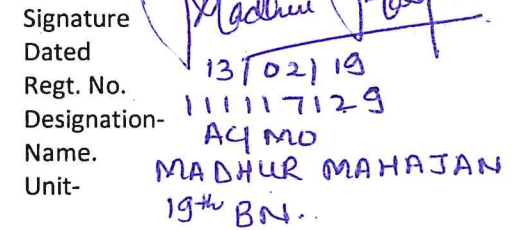 Signature Madhur
Dated 13/02/19
Regt. No. 111117129
Designation- AC/MO
Name. MADHUR MAHAJAN
Unit- 19th BN..